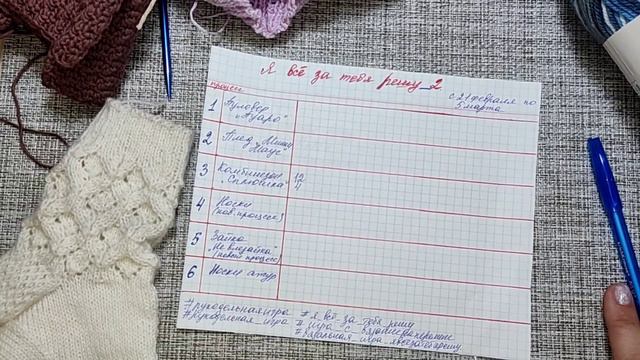 Я всё за тебя решу_2
процесс
с 21 февраля по
5 марта
1 Пуловер
"Ауаро"
2 Плед „Микки
Маус"
3 Комбинезон 12
„Сплюшка" 4
4 Носки
(нов. процесс)
5 Зайка
„Не влезайка"
(новый процесс)
6 Носки ажур
#рукодельнаяигра # я_всё_за_тебя_решу
#рукодельная_игра # игра_с
#вязальная_игра